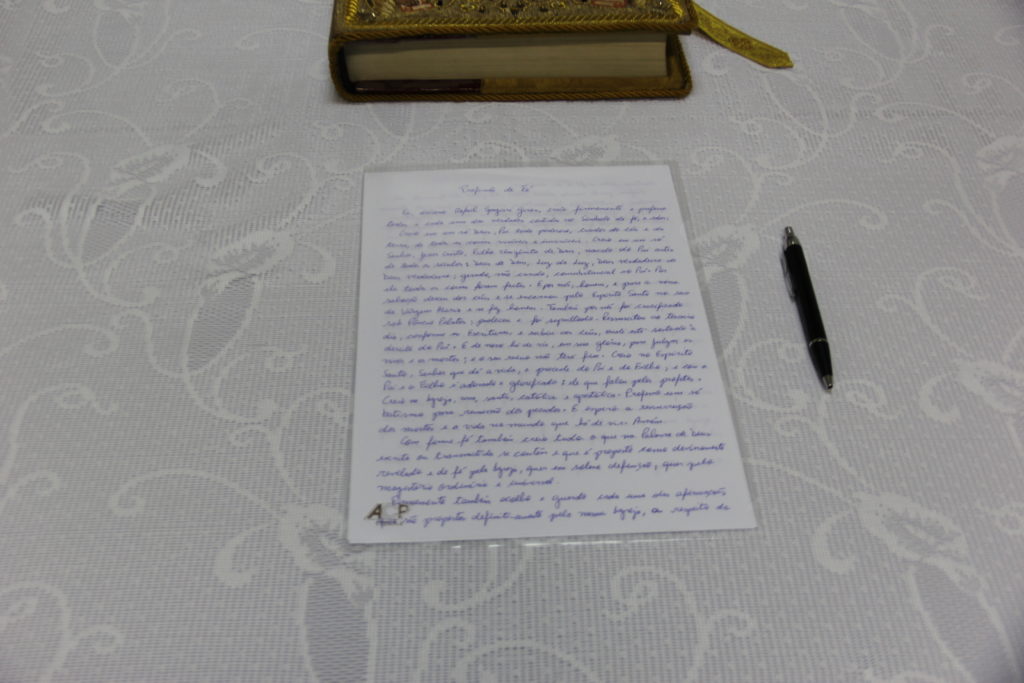 Profissão de Fé
Eu, creio firmemente e professo
todas e cada uma das verdades contidas no Símbolo da fé, a saber:
Creio em um só Deus, Pai todo poderoso, criador do céu e da
terra, de todas as coisas visíveis e invisíveis. Creio em um só
Senhor, Jesus Cristo, Filho Unigênito de Deus, nascido do Pai antes
de todos os séculos: Deus de Deus, Luz da Luz, Deus verdadeiro de
Deus verdadeiro; gerado, não criado, consubstancial ao Pai. Por
Ele todas as coisas foram feitas. E por nós, homens, e para a nossa
salvação desceu dos céus, e se encarnou pelo Espírito Santo no seio
da Virgem Maria e se fez homem. Também por nós foi crucificado
sob Pôncio Pilatos; padeceu e foi sepultado. Ressuscitou ao terceiro
dia, conforme as Escrituras, e subiu aos céus, onde está sentado à
direita do Pai. E de novo há de vir, em sua glória, para julgar os
vivos e os mortos; e o seu reino não terá fim. Creio no Espírito
Santo, Senhor que dá a vida, e procede do Pai e do Filho; e com o
Pai e o Filho é adorado e glorificado: ele que falou pelos profetas.
Creio na Igreja, una, santa, católica e apostólica. Professo um só
batismo para remissão dos pecados. E espero a ressurreição
dos mortos e a vida no mundo que há de vir. Amém.
Com firme fé também creio tudo o que na Palavra de Deus
escrita ou transmitida se contém e que é proposto como divinamente
revelado e de fé pela Igreja, quer em solene definição, quer pelo
magistério ordinário e universal.
Firmemente também acolho e guardo cada uma das afirmações
que são propostas definitivamente pela mesma Igreja, a respeito da
A P